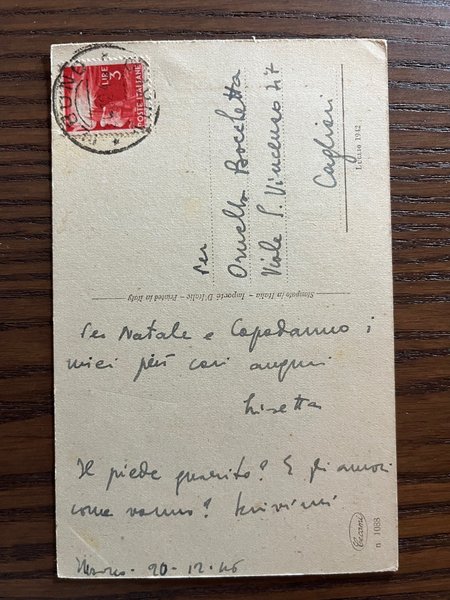 LIRE 3
POSTE ITALIANE
Per
Ornella Bocchetta
Viale S. Vincenzo 27
Cagliari
LUGLIO 1942
Stampato in Italia - Importé D'Italie - Printed in Italy
Per Natale e Capodanno i
miei più cari auguri
Lisetta
Il piede guarito? E gli amori
come vanno? Scrivimi
20-12-46
n. 1088